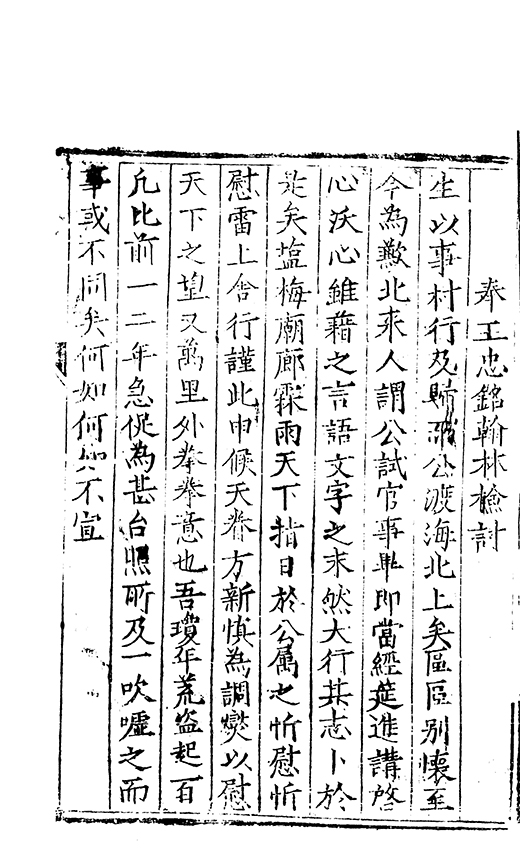 奉王忠銘翰林檢討
生以事村行及歸而公渡海北上矣區區別懷至
今為歉北來人謂公試官事畢即當經筵進講啓
心沃心雖藉之言語文字之末然大行其志卜於
是矣塩梅廟廊霖雨天下指日於公属之忻慰忻
慰雷上舍行謹此申候天眷方新慎為調爕以慰
天下之望又萬里外拳拳意也吾瓊年荒盗起一百
凡比前一二年急促為甚台照所及一吹噓之而
事或不同矣何如何如不宣